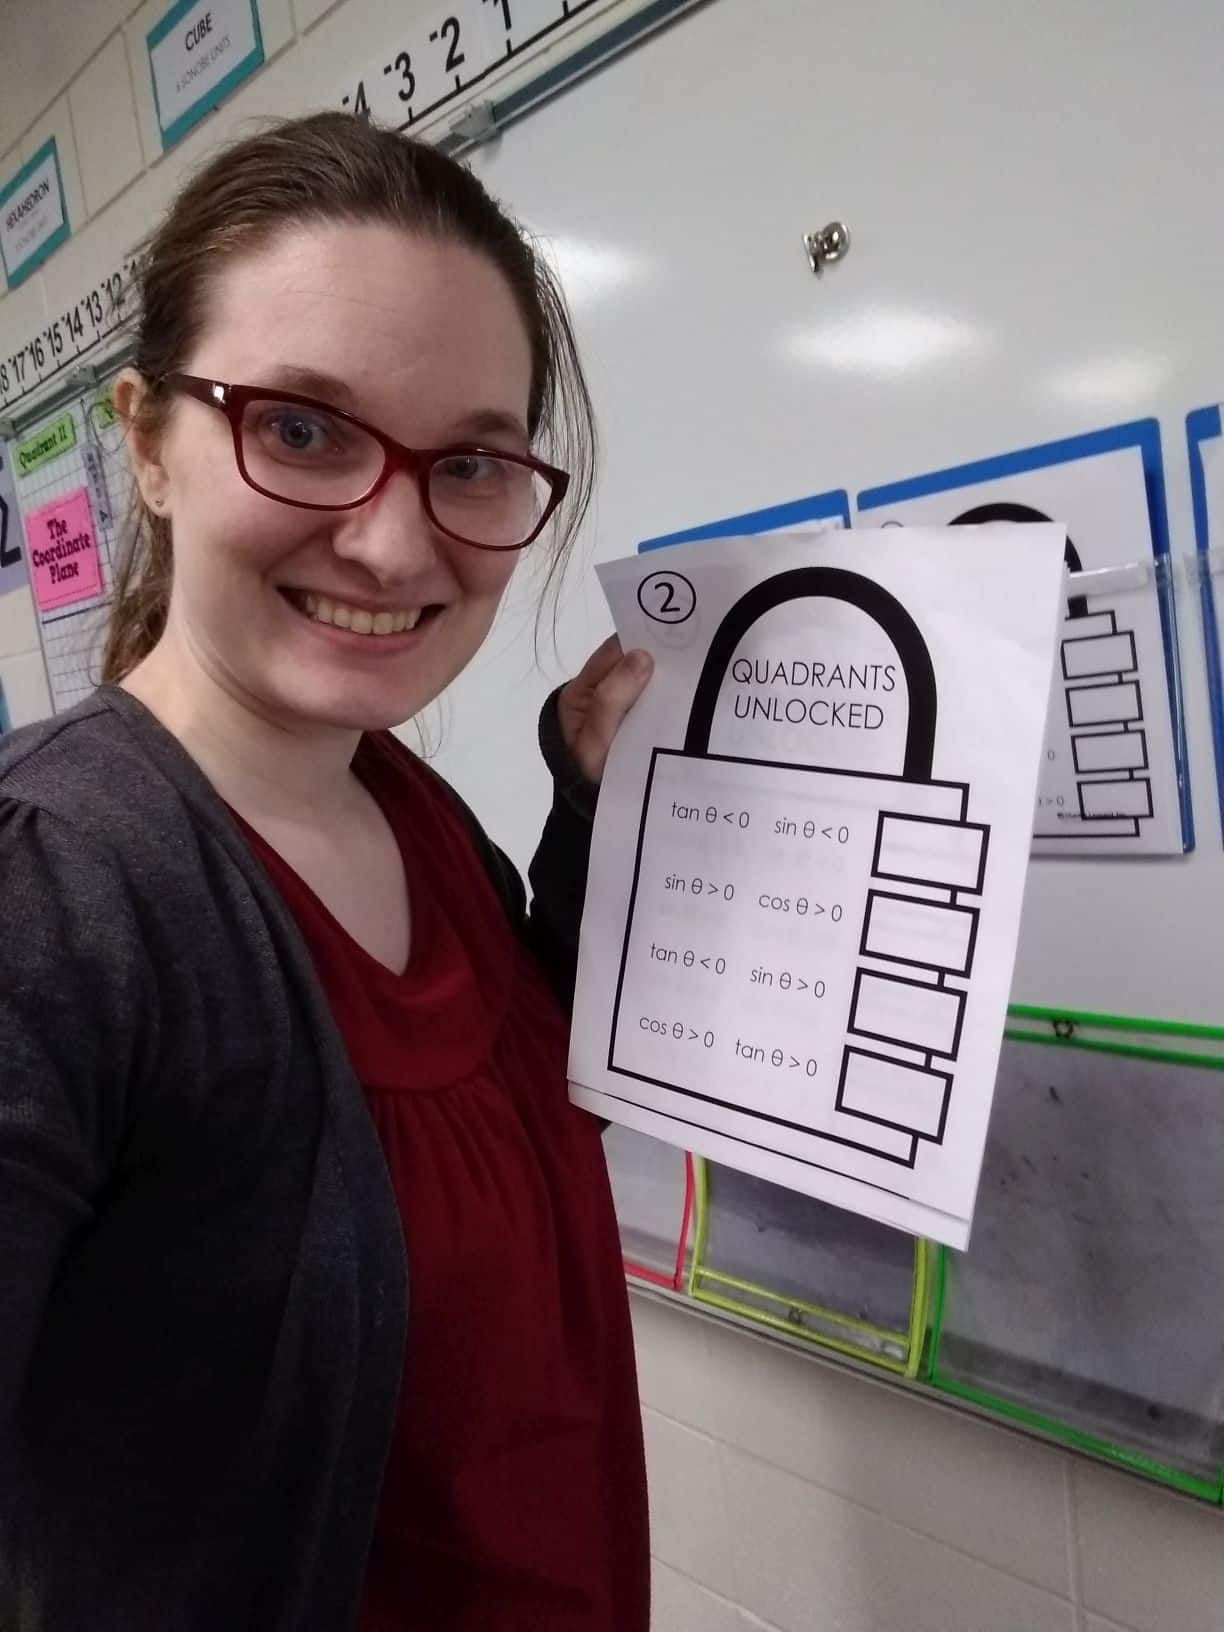 CUBE
6 SONOBE UNITS
HEXAHEDRON
-4 -3 -2 -1
-17 -16 -15 -14 -13 -12
Quadrant II
The
Coordinate
Plane
2
QUADRANTS
UNLOCKED
tan θ < 0 sin θ < 0
sin θ > 0 cos θ > 0
tan θ < 0 sin θ > 0
cos θ > 0 tan θ > 0